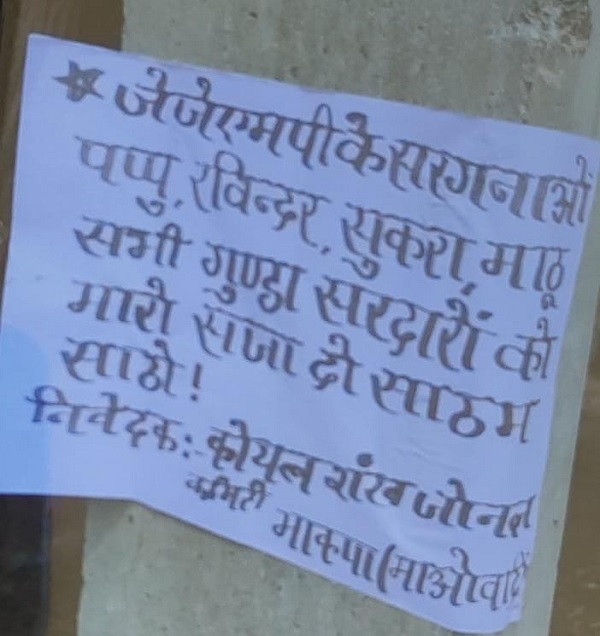 ★ जेजेएमपी के सरगनाओं
पप्पु, रविन्दर, सुकरा, माठू
सभी गुण्डा सरदारों को
मारो सजा दो साठम
साठो!
निवेदक:- कोयल शंख जोनल
कमिटी
माकपा (माओवादी